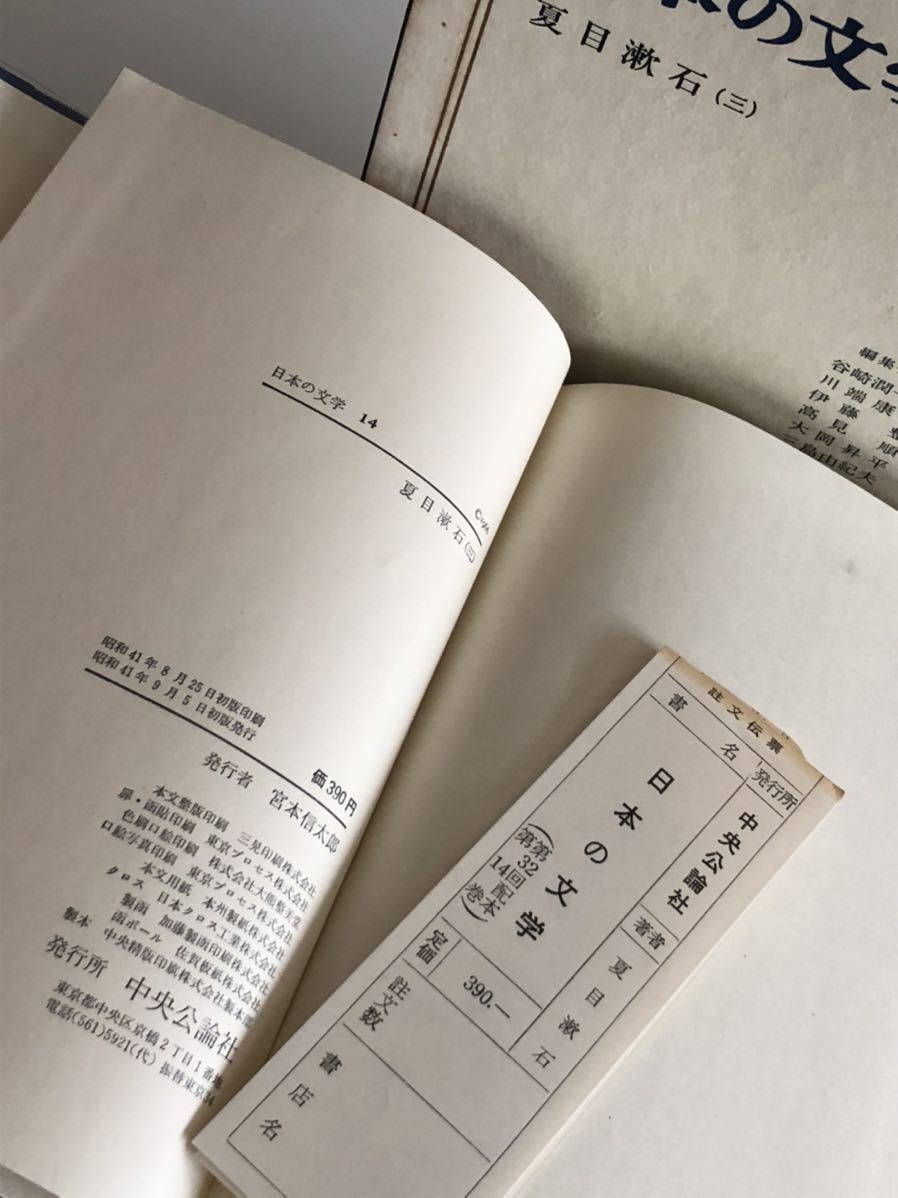 本の文学
夏目漱石(三)
編集
谷崎潤一
川端康
伊藤整
高見順
大岡昇平
三島由紀夫
日本の文学 14
夏目漱石(三)
昭和41年8月25日初版印刷
昭和41年9月5日初版発行
価390円
発行者 宮本信太郎
本文整版印刷 三晃印刷株式会社
扉・函貼印刷 東京プロセス株式会社
色刷口絵印刷 株式会社大熊整美堂
口絵写真印刷 東京プロセス株式会社
本文用紙 本州製紙株式会社
クロス 日本クロス工業株式会社
製函 加藤製函印刷株式会社
函ボール 佐賀板紙株式会社
製本 中央精版印刷株式会社製本部
発行所 中央公論社
東京都中央区京橋2丁目1番地
電話(561)5921(代) 振替東京34
註文伝票
発行所
中央公論社
書名
日本の文学
(第32回配本
第14巻)
著者
夏目漱石
定価
390.—
註文数
書店名